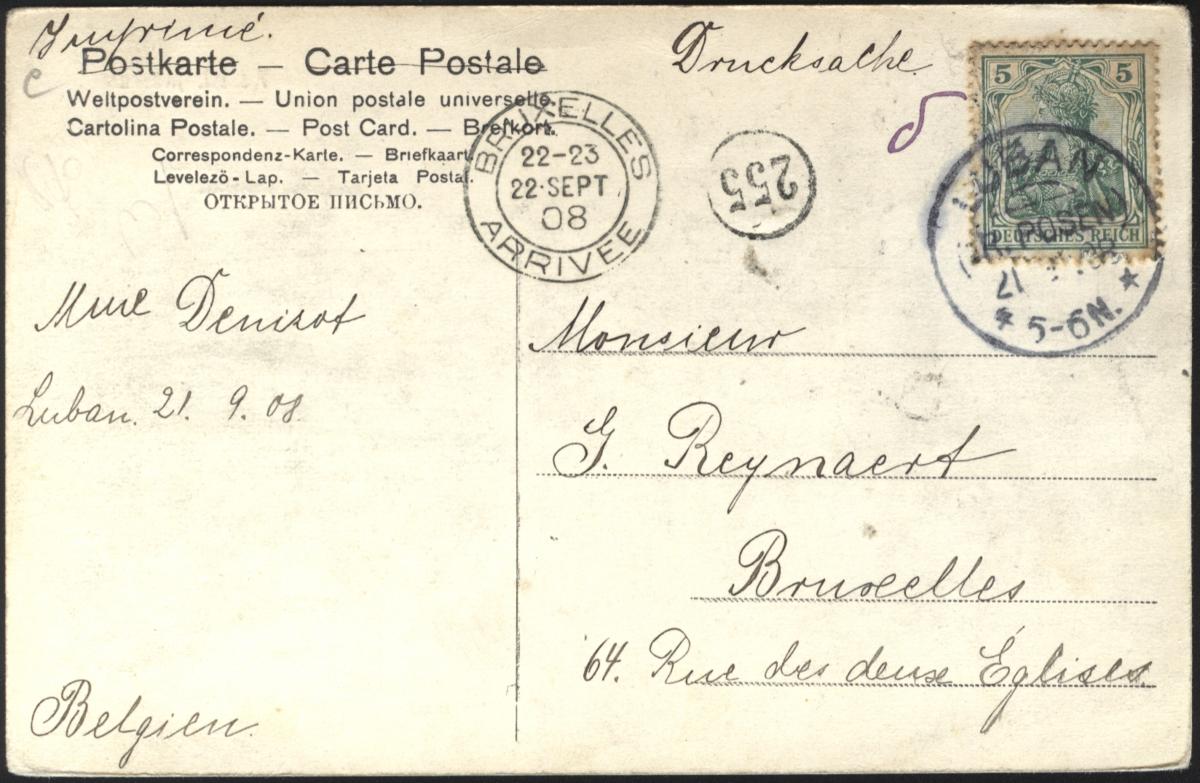 Imprimé.
Postkarte — Carte Postale
Weltpostverein. — Union postale universelle.
Cartolina Postale. — Post Card. — Brefkort.
Correspondenz-Karte. — Briefkaart.
Levelező-Lap. — Tarjeta Postal.
ОТКРЫТОЕ ПИСЬМО.
Drucksache.
5 5
DEUTSCHES REICH
LUBAN
POSEN
5-6N.
BRUXELLES
22-23
22·SEPT
08
ARRIVEE
255
Mme Denizot
Luban. 21. 9. 08
Belgien.
Monsieur
G. Reynaert
Bruxelles
64. Rue des deux Églises